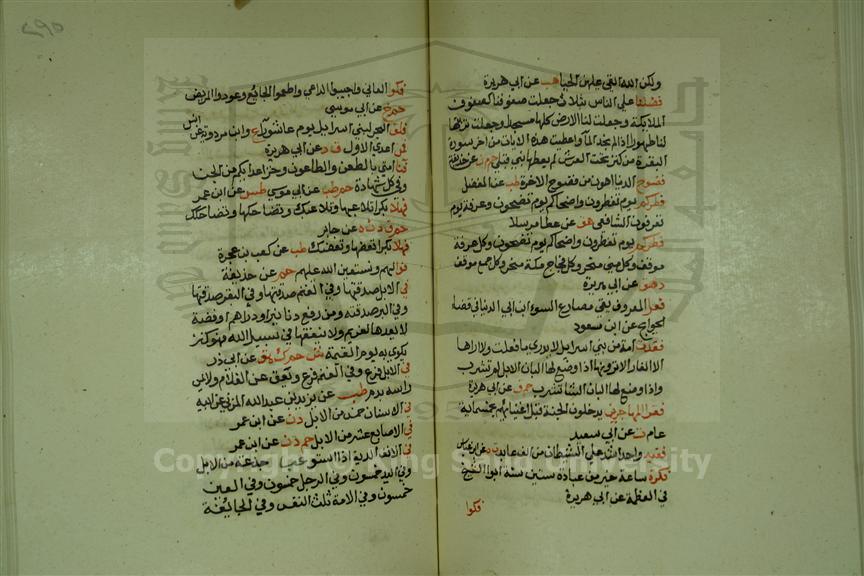 ولكن الله القى عليهن الحيا هب عن ابي هريرة
فضلنا على الناس بثلاث جعلت صفوفنا كصفوف
الملايكة وجعلت لنا الارض كلها مسجدا وجعلت تربتها
لنا طهورا اذا لم نجد الماء واعطيت هذه الايات من اخر سورة
البقرة من كنز تحت العرش لم يعطها نبي قبلي حم م ن عن حذيفة
فضوح الدنيا اهون من فضوح الاخرة طب عن الفضل
فطركم يوم تفطرون واضحاكم يوم تضحون وعرفة يوم
تعرفون الشافعي هق عن عطا مرسلا
فطركم يوم تفطرون واضحاكم يوم تضحون وكل عرفة
موقف وكل منى منحر وكل فجاج مكة منحر وكل جمع موقف
د هق عن ابي هريرة
فعل المعروف يقي مصارع السوء ابن ابي الدنيا في قضا
الحوايج عن ابن سعود
فقدت امة من بني اسرايل لا يدرى ما فعلت ولا اراها
الا الفار الا ترونها اذا وضع لها البان الابل لم تشرب
واذا وضع لها البان الشا تشرب حم ق عن ابي هريرة
فقرا المهاجرين يدخلون الجنة قبل اغنيايهم بخمسماية
عام ت عن ابي سعيد
فقيه واحد اشد على الشيطان من الف عابد ت ه عن ابن عباس
فكرة ساعة خير من عبادة ستين سنة ابو الشيخ
في العظمة عن ابي هريرة
فكوا
٢٩٥
فكوا العاني واجيبوا الداعي واطعموا الجايع وعودوا المريض
حم خ عن ابي موسى
فلق البحر لبني اسرايل يوم عاشورا ع وابن مردوية عن انس
فمن اعدى الاول ق د عن ابي هريرة
فنا امتي بالطعن والطاعون وخز اعدايكم من الجن
وفي كل شهادة حم طب عن ابي موسى طس عن ابن عمر
فهلا بكرا تلاعبها وتلاعبك وتضاحكها وتضاحكك
حم ق د ن ه عن جابر
فهلا بكرا تعضها وتعضك طب عن كعب بن عجرة
فوا لهم ونستعين الله عليهم حم عن حذيفة
في الابل صدقتها وفي الغنم صدقتها وفي البقر صدقتها
وفي البر صدقته ومن رفع دنانيرا ودراهم او فضة
لا يعدها لغريم ولا ينفقها في سبيل الله فهو كنز
يكوى به يوم القيمة ش حم ك هق عن ابي ذر
في الابل فرع وفي الغنم فرع ويعق عن الغلام ولا يمس
راسه بدم طب عن يزيد بن عبد الله المزني عن ابيه
في الاسنان خمس من الابل د ن عن ابن عمر
في الاصابع عشر من الابل حم د ن عن ابن عمر
في الانف الدية اذا استوعب جذعه من الابل
وفي اليد خمسون وفي الرجل خمسون وفي العين
خمسون وفي الامة ثلث النفس وفي الجايفة
Copyright © King Saud University